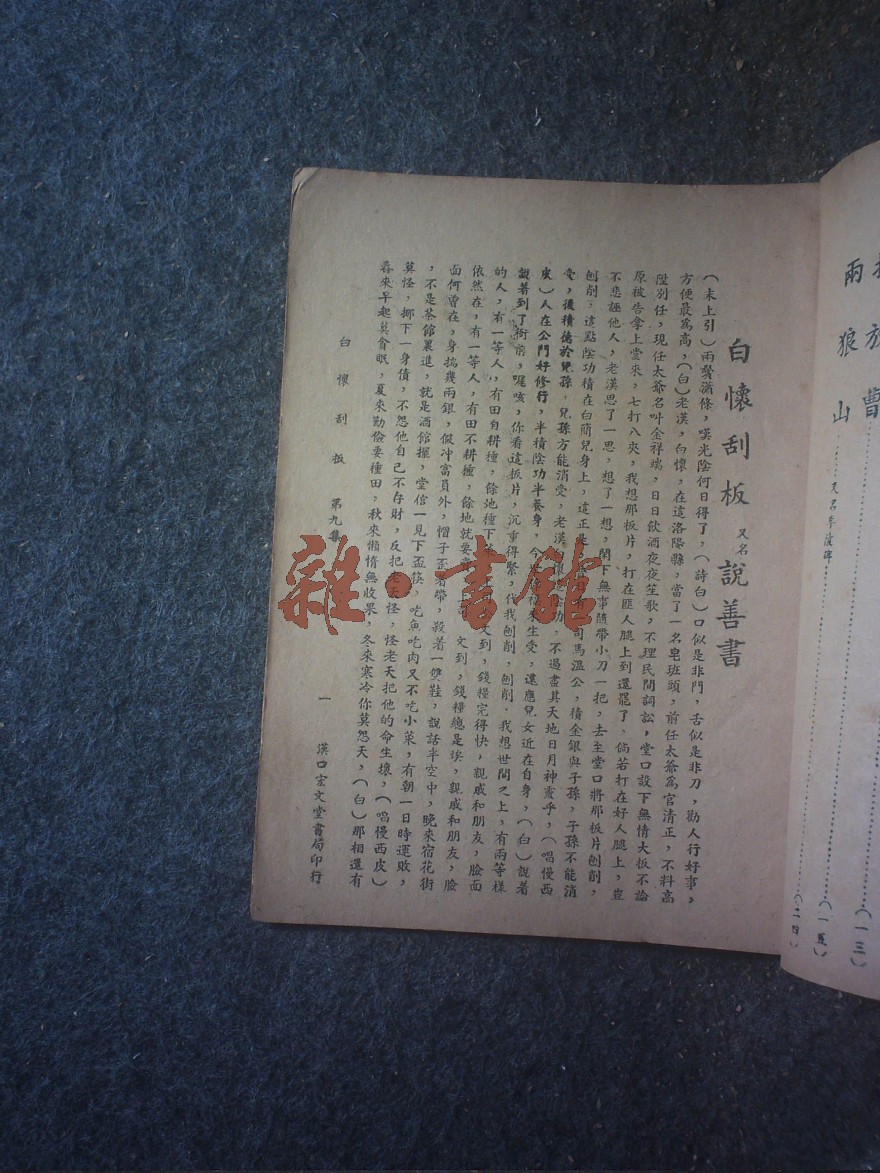 曹
（一三）
兩狼山
（一五）
（二四）
白懷刮板 又名 說善書
（末上引）兩鬢瀟條，嘆光陰何日得了，（詩白）口似是非門，舌似是非刀，勸人行好事，
方便最爲高，（白）老漢，白懷，在這洛陽縣，當了一名皂班頭，前任太爺爲官清正，不料高
陞別任，現任太爺名叶金祥瑞，日日飲酒夜夜笙歌，不理民間詞訟，堂口設下無情大板不論
原被告拿上堂來，七打八夾，我想那板片，打在匪人腿上到還罷了，倘若打在好人腿上，豈
不悲誣他人，老漢思了一思，想了一想，閑下無事隨帶小刀一把，去至堂口將那板片刨削，
刨削，這點陰功積在白簡兒身上，這正是 司馬溫公，積金銀與子孫，子孫不能消
受，後積德於兒孫，兒孫方能消受，老漢 陰功，不過盡其天地日月神靈乎，（唱慢西
皮）人在公門好修行，半積陰功半養身，今 來生受，還應兒女近在自身，（白）說着
說著到了衙前，喔咳，你看這板片，沉重得緊，代我刨削，刨削。我想世間之上，有兩等樣
的人，有一等人，有田自耕種，餘地種下 文到，錢糧完得快，親戚和朋友，臉面
依然在，有一等人，有田不耕種，餘地就要 文到，錢糧總是挨，親戚和朋友，臉
面何曾在，身揣幾兩銀，假冲富員外，帽子歪着帶，殺着一雙鞋，說話半空中，晚來宿花街
，不是茶館裏進，就是酒館擺，堂信一見下盃筷，吃魚吃肉又不吃小菜，有朝一日時運敗，
莫怪，挪下一身債，不怨他自己不存財，反把老天怪，怪老天把他的命生壞，（唱慢西皮）
春來早起莫貪眠，夏來勤儉要種田，秋來懶惰無收果，冬來寒冷你莫怨天，（白）那相還有
白懷刮板 第九集 一 漢口宏文堂書局印行
雜·書館